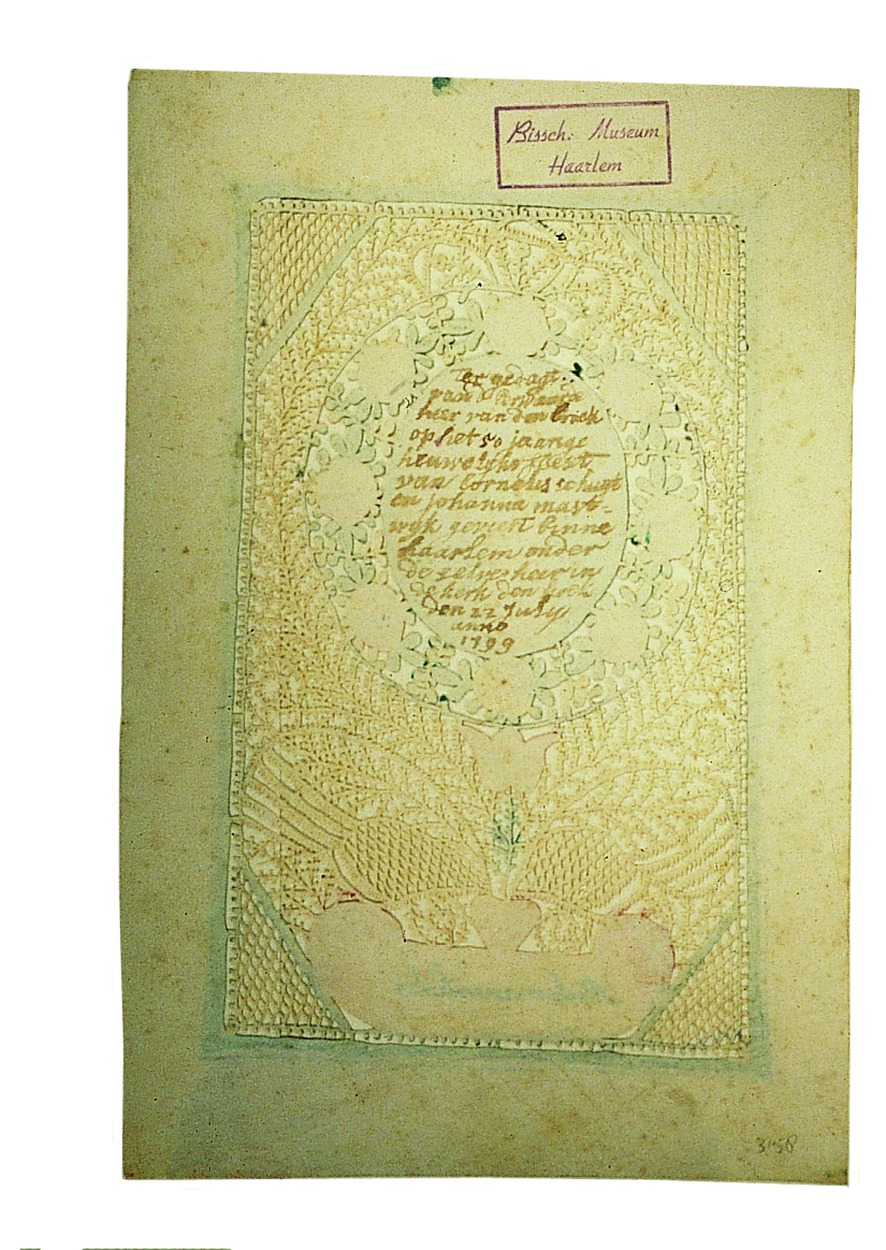 Bissch. Museum
Haarlem
ter gedagt:
van d'Eerwaarde
heer van den briek
op het 50 jaarige
heuwelyks feest
van Cornelis schugt
en johanna mast-
wijk geviert binne
haarlem onder
de zelve heer in
de kerk den hoek
den 22 July
anno
1799
3158